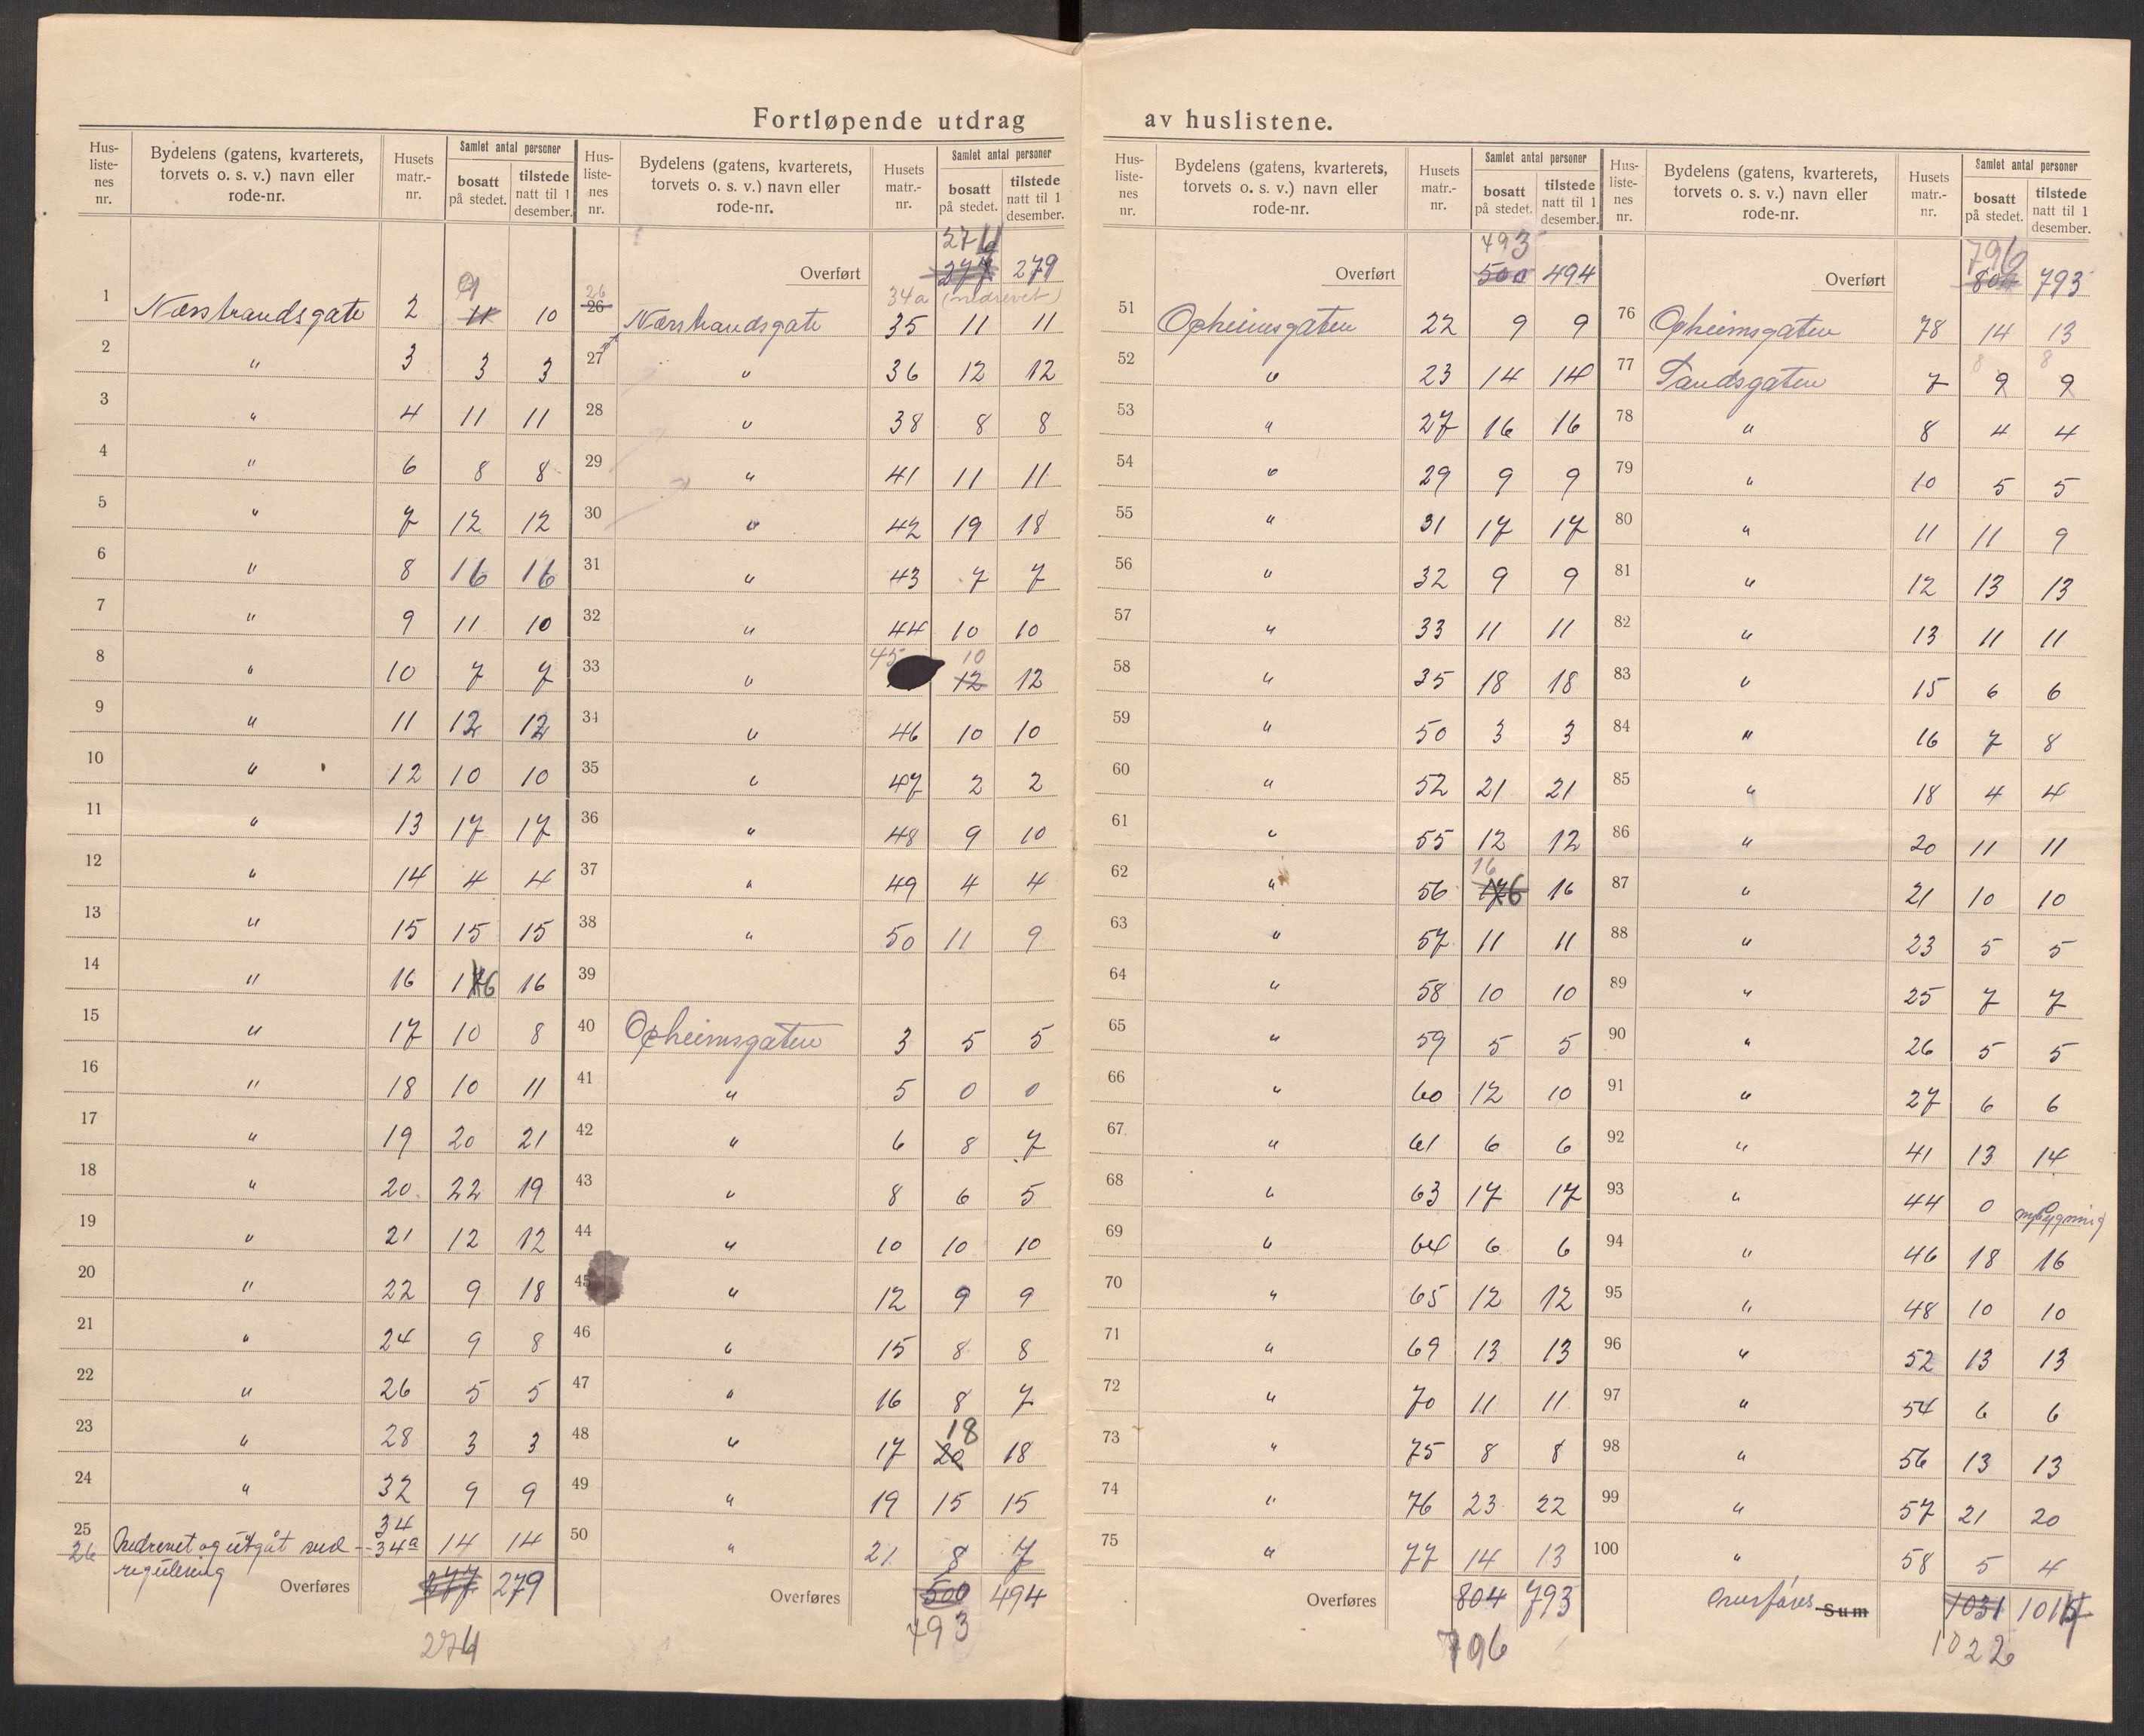 Fortløpende utdrag av huslistene.
Hus-liste-nes nr. Bydelens (gatens, kvarterets, torvets o. s. v.) navn eller rode-nr. Husets matr.-nr. Samlet antal personer bosatt på stedet. tilstede natt til 1 desember.
1 Nærstrandsgate 2 11 9 10
2 " 3 3 3
3 " 4 11 11
4 " 6 8 8
5 " 7 12 12
6 " 8 16 16
7 " 9 11 10
8 " 10 7 7
9 " 11 12 12
10 " 12 10 10
11 " 13 17 17
12 " 14 4 4
13 " 15 15 15
14 " 16 16 16
15 " 17 10 8
16 " 18 10 11
17 " 19 20 21
18 " 20 22 19
19 " 21 12 12
20 " 22 9 18
21 " 24 9 8
22 " 26 5 5
23 " 28 3 3
24 " 32 9 9
25 34 14 14
26 Nedrevet og utgåt ved regulering 34a
Overføres 277 279
274
Hus-liste-nes nr. Bydelens (gatens, kvarterets, torvets o. s. v.) navn eller rode-nr. Husets matr.-nr. Samlet antal personer bosatt på stedet. tilstede natt til 1 desember.
274
Overført 277 279
26 34a (nedrevet)
26 Nærstrandsgate 35 11 11
27 " 36 12 12
28 " 38 8 8
29 " 41 11 11
30 " 42 19 18
31 " 43 7 7
32 " 44 10 10
33 " 45 12 10 12
34 " 46 10 10
35 " 47 2 2
36 " 48 9 10
37 " 49 4 4
38 " 50 11 9
39
40 Opheimsgaten 3 5 5
41 " 5 0 0
42 " 6 8 7
43 " 8 6 5
44 " 10 10 10
45 " 12 9 9
46 " 15 8 8
47 " 16 8 7
48 " 17 20 18 18
49 " 19 15 15
50 " 21 8 7
Overføres 500 494
493
Hus-liste-nes nr. Bydelens (gatens, kvarterets, torvets o. s. v.) navn eller rode-nr. Husets matr.-nr. Samlet antal personer bosatt på stedet. tilstede natt til 1 desember.
493
Overført 500 494
51 Opheimsgaten 22 9 9
52 " 23 14 14
53 " 27 16 16
54 " 29 9 9
55 " 31 17 17
56 " 32 9 9
57 " 33 11 11
58 " 35 18 18
59 " 50 3 3
60 " 52 21 21
61 " 55 12 12
62 " 56 16 16
63 " 57 11 11
64 " 58 10 10
65 " 59 5 5
66 " 60 12 10
67 " 61 6 6
68 " 63 17 17
69 " 64 6 6
70 " 65 12 12
71 " 69 13 13
72 " 70 11 11
73 " 75 8 8
74 " 76 23 22
75 " 77 14 13
Overføres 804 793
796
Hus-liste-nes nr. Bydelens (gatens, kvarterets, torvets o. s. v.) navn eller rode-nr. Husets matr.-nr. Samlet antal personer bosatt på stedet. tilstede natt til 1 desember.
796
Overført 804 793
76 Opheimsgaten 78 14 13
8 8
77 Sandsgaten 7 9 9
78 " 8 4 4
79 " 10 5 5
80 " 11 11 9
81 " 12 13 13
82 " 13 11 11
83 " 15 6 6
84 " 16 7 8
85 " 18 4 4
86 " 20 11 11
87 " 21 10 10
88 " 23 5 5
89 " 25 7 7
90 " 26 5 5
91 " 27 6 6
92 " 41 13 14
93 " 44 0 0 nybygning
94 " 46 18 16
95 " 48 10 10
96 " 52 13 13
97 " 54 6 6
98 " 56 13 13
99 " 57 21 20
100 " 58 5 4
Overføres Sum 1031
1022